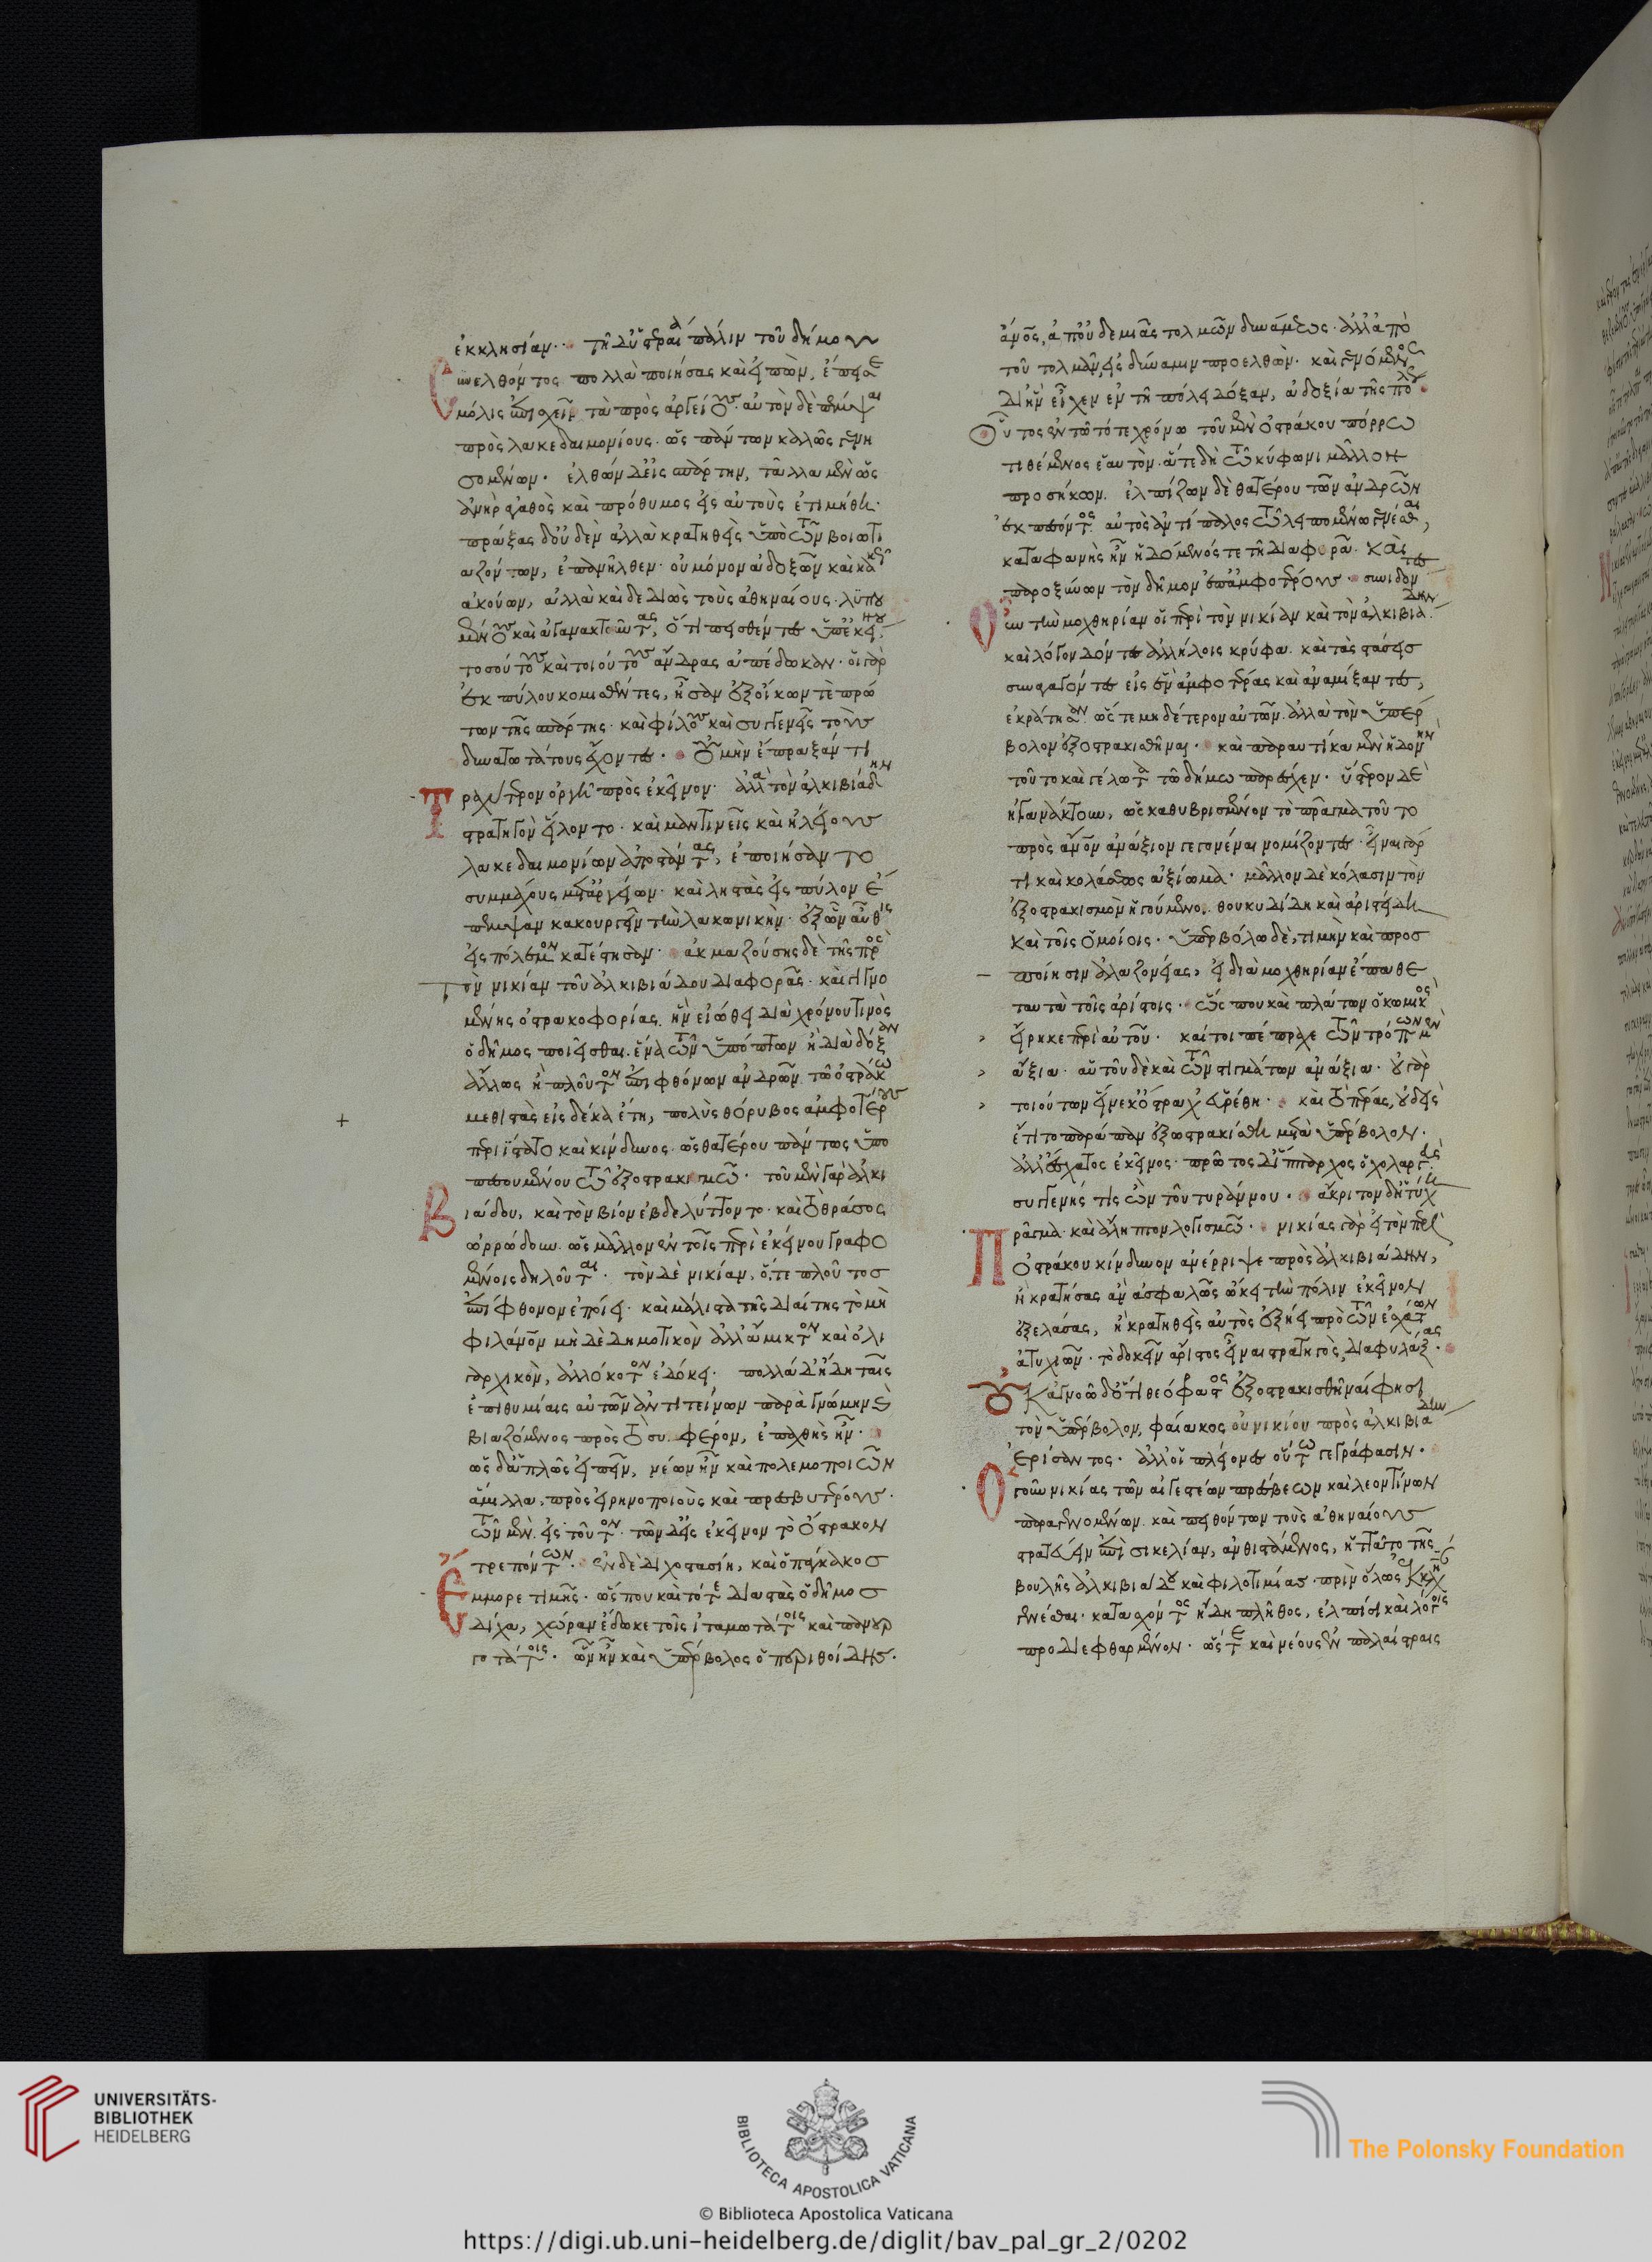 ἐκκλησίαν· τῇ δ' ὑστεραίᾳ πάλιν τοῦ δήμου
Συνελθόντος πολλὰ ποιήσας καὶ εἰπὼν, ἔπεισε
μόλις ἐπισχεῖν τὰ πρὸς ἀργείους· αὐτὸν δὲ πέμψαι
πρὸς λακεδαιμονίους· ὡς πάντων καλῶς γενη
σομένων· ἐλθὼν δ' εἰς σπάρτην, τἄλλα μὲν ὡς
ἀνὴρ ἀγαθὸς καὶ πρόθυμος εἰς αὐτοὺς ἐτιμήθη·
πράξας δ' οὐδὲν ἀλλὰ κρατηθεὶς ὑπὸ τῶν βοιωτι
αζόντων, ἐπανῆλθεν· οὐ μόνον ἀδοξῶν καὶ κακῶς
ἀκούων, ἀλλὰ καὶ δεδιὼς τοὺς ἀθηναίους· λυπου
μένους καὶ ἀγανακτοῦντας, ὅτι πεισθέντες ὑπ' ἐκείνου
τοσούτους καὶ τοιούτους ἄνδρας ἀπέδωκαν· οἱ γὰρ
ἐκ πύλου κομισθέντες, ἦσαν ἐξ οἴκων τὲ πρώ
των τῆς σπάρτης· καὶ φίλους καὶ συγγενεῖς τοὺς
δυνατωτάτους ἔχοντες· οὐ μὴν ἔπραξάν τι
Τραχύτερον ὀργῇ πρὸς ἐκεῖνον· ἀλλὰ τὸν ἀλκιβιάδην
στρατηγὸν εἵλοντο· καὶ μαντινεῖς καὶ ἠλείους
λακεδαιμονίων ἀποστάντας, ἐποιήσαντο
συμμάχους μετ' ἀργείων· καὶ ληστὰς εἰς πύλον ἔ
πεμψαν κακουργεῖν τὴν λακωνικὴν· ἐξ ὧν αὖθις
εἰς πόλεμον κατέστησαν· ἀκμαζούσης δὲ τῆς πρὸς
τὸν νικίαν τοῦ ἀλκιβιάδου διαφορᾶς· καὶ γιγνο
μένης ὀστρακοφορίας, ἣν εἰώθει διὰ χρόνου τινὸς
ὁ δῆμος ποιεῖσθαι· ἕνα τῶν ὑπόπτων ἢ διὰ δόξαν
ἄλλως ἢ πλοῦτον ἐπιφθόνων ἀνδρῶν τῷ ὀστράκῳ
μεθιστὰς εἰς δέκα ἔτη, πολὺς θόρυβος ἀμφοτέρους
περιΐστατο καὶ κίνδυνος· ὡς θατέρου πάντως ὑπο
πεσουμένου τῷ ἐξοστρακισμῷ· τοῦ μὲν γὰρ ἀλκι
Βιάδου, καὶ τὸν βίον ἐβδελύττοντο· καὶ τὸ θράσος
ὠρρώδουν· ὡς μᾶλλον ἐν τοῖς περὶ ἐκείνου γραφο
μένοις δηλοῦται· τὸν δὲ νικίαν, ὅ, τε πλοῦτος
ἐπίφθονον ἐποίει· καὶ μάλιστα τῆς διαίτης τὸ μὴ
φιλάνθρωπον μὴ δὲ δημοτικὸν ἀλλ' ἄμικτον καὶ ὀλι
γαρχικὸν, ἀλλόκοτον ἐδόκει· πολλὰ δ' ἤδη ταῖς
ἐπιθυμίαις αὐτῶν ἀντιτείνων παρὰ γνώμην
βιαζόμενος πρὸς τὸ συμφέρον, ἐπαχθὴς ἦν·
ὡς δ' ἁπλῶς εἰπεῖν, νέων ἦν καὶ πολεμοποιῶν
ἅμιλλα, πρὸς εἰρηνοποιοὺς καὶ πρεσβυτέρους·
τῶν μὲν εἰς τοῦτον· τῶν δ' εἰς ἐκεῖνον τὸ ὄστρακον
τρεπόντων· ἐν δὲ διχοστασίη, καὶ ὁ πάγκακος
Ἔμμορε τιμῆς· ὥς που καὶ τότε διαστὰς ὁ δῆμος
δίχα, χώραν ἔδωκε τοῖς ἰταμωτάτοις καὶ πανουρ
γοτάτοις· ὧν ἦν καὶ ὑπέρβολος ὁ περιθοίδης·
ἄνθρωπος, ἀπ' οὐδεμιᾶς τολμῶν δυνάμεως· ἀλλ' ἀπὸ
τοῦ τολμᾶν, εἰς δύναμιν προελθὼν· καὶ γενόμενος
δι' ἣν εἶχεν ἐν τῇ πόλει δόξαν, ἀδοξία τῆς πόλεως·
Οὗτος ἐν τῷ τότε χρόνω τοῦ μὲν ὀστράκου πόρρω
τιθέμενος ἑαυτὸν· ἅτε δὴ τῷ κύφωνι μᾶλλον
προσήκων· ἐλπίζων δὲ θατέρου τῶν ἀνδρῶν
ἐκπεσόντος αὐτὸς ἀντίπαλος τῷ λειπομένω γενέσθαι,
καταφανὴς ἦν ἡδόμενός τε τῇ διαφορᾷ· καὶ
παροξύνων τὸν δῆμον ἐπ' ἀμφοτέρους· συνιδόντες
Οὖν τὴν μοχθηρίαν οἱ περὶ τὸν νικίαν καὶ τὸν ἀλκιβιάδην·
καὶ λόγον δόντες ἀλλήλοις κρύφα· καὶ τὰς στάσεις
συναγαγόντες εἰς ἓν ἀμφοτέρας καὶ ἀναμίξαντες,
ἐκράτησαν ὥστε μηδέτερον αὐτῶν· ἀλλὰ τὸν ὑπέρ
βολον ἐξοστρακισθῆναι· καὶ παραυτίκα μὲν ἡδονὴν
τοῦτο καὶ γέλωτα τῷ δήμω παρέσχεν· ὕστερον δὲ
ἠγανάκτουν, ὡς καθυβρισμένον τὸ πρᾶγμα τοῦτο
πρὸς ἄνθρωπον ἀνάξιον γεγονέναι νομίζοντες· εἶναι γάρ
τι καὶ κολάσεως ἀξίωμα· μᾶλλον δὲ κόλασιν τὸν
ἐξοστρακισμὸν ἡγούμενοι θουκυδίδη καὶ ἀριστείδη
καὶ τοῖς ὁμοίοις· ὑπερβόλω δὲ, τιμὴν καὶ προσ
ποίησιν ἀλαζονείας, εἰ διὰ μοχθηρίαν ἔπαθε
ταυτὰ τοῖς ἀρίστοις· ὥς που καὶ πλάτων ὁ κωμικὸς
εἴρηκε περὶ αὐτοῦ· καίτοι πέπραχε τῶν τρόπων μὲν
ἄξια· αὑτοῦ δὲ καὶ τῶν στιγμάτων ἀνάξια· οὐ γὰρ
τοιούτων εἵνεκ' ὄστραχ' εὑρέθη· καὶ τὸ πέρας, οὐδεὶς
ἔτι τοπαράπαν ἐξωστρακίσθη μετὰ ὑπέρβολον·
ἀλλ' ἔσχατος ἐκεῖνος· πρῶτος δ' ἵππαρχος ὁ χολαργεὺς
συγγενής τίς ὢν τοῦ τυράννου· ἄκριτον δ' ἡ τύχη
Πρᾶγμα καὶ ἄληπτον λογισμῷ· νικίας γὰρ εἰ τὸν περὶ
ὀστράκου κίνδυνον ἀνέρριψε πρὸς ἀλκιβιάδην,
ἢ κρατήσας ἂν ἀσφαλῶς ᾤκει τὴν πόλιν ἐκεῖνον
ἐξελάσας, ἢ κρατηθεὶς αὐτὸς ἐξήει πρὸ τῶν ἐσχάτων
ἀτυχιῶν· τὸ δοκεῖν ἄριστος εἶναι στρατηγὸς διαφυλάξας·
Οὐκ ἀγνοῶ δ' ὅτι θεόφραστος ἐξοστρακισθῆναί φησι
τὸν ὑπέρβολον, φαίακος οὐ νικίου πρὸς ἀλκιβιάδην
ἐρίσαντος· ἀλλ' οἱ πλείονες οὕτω γεγράφασιν·
Ὁ γοῦν νικίας τῶν αἰγεστέων πρέσβεων καὶ λεοντίνων
παραγενομένων καὶ πειθόντων τοὺς ἀθηναίους
στρατεύειν ἐπὶ σικελίαν, ἀνθιστάμενος, ἡττᾶτο τῆς
βουλῆς ἀλκιβιάδου καὶ φιλοτιμίας· πρὶν ὅλως ἐκκλησίαν
γενέσθαι· κατασχόντος ἤδη πλῆθος, ἐλπίσι καὶ λόγοις
προδιεφθαρμένον· ὥστε καὶ νέους ἐν παλαίστραις
UNIVERSITÄTS-
BIBLIOTHEK
HEIDELBERG
BIBLIOTECA APOSTOLICA VATICANA
The Polonsky Foundation
© Biblioteca Apostolica Vaticana
https://digi.ub.uni-heidelberg.de/diglit/bav_pal_gr_2/0202